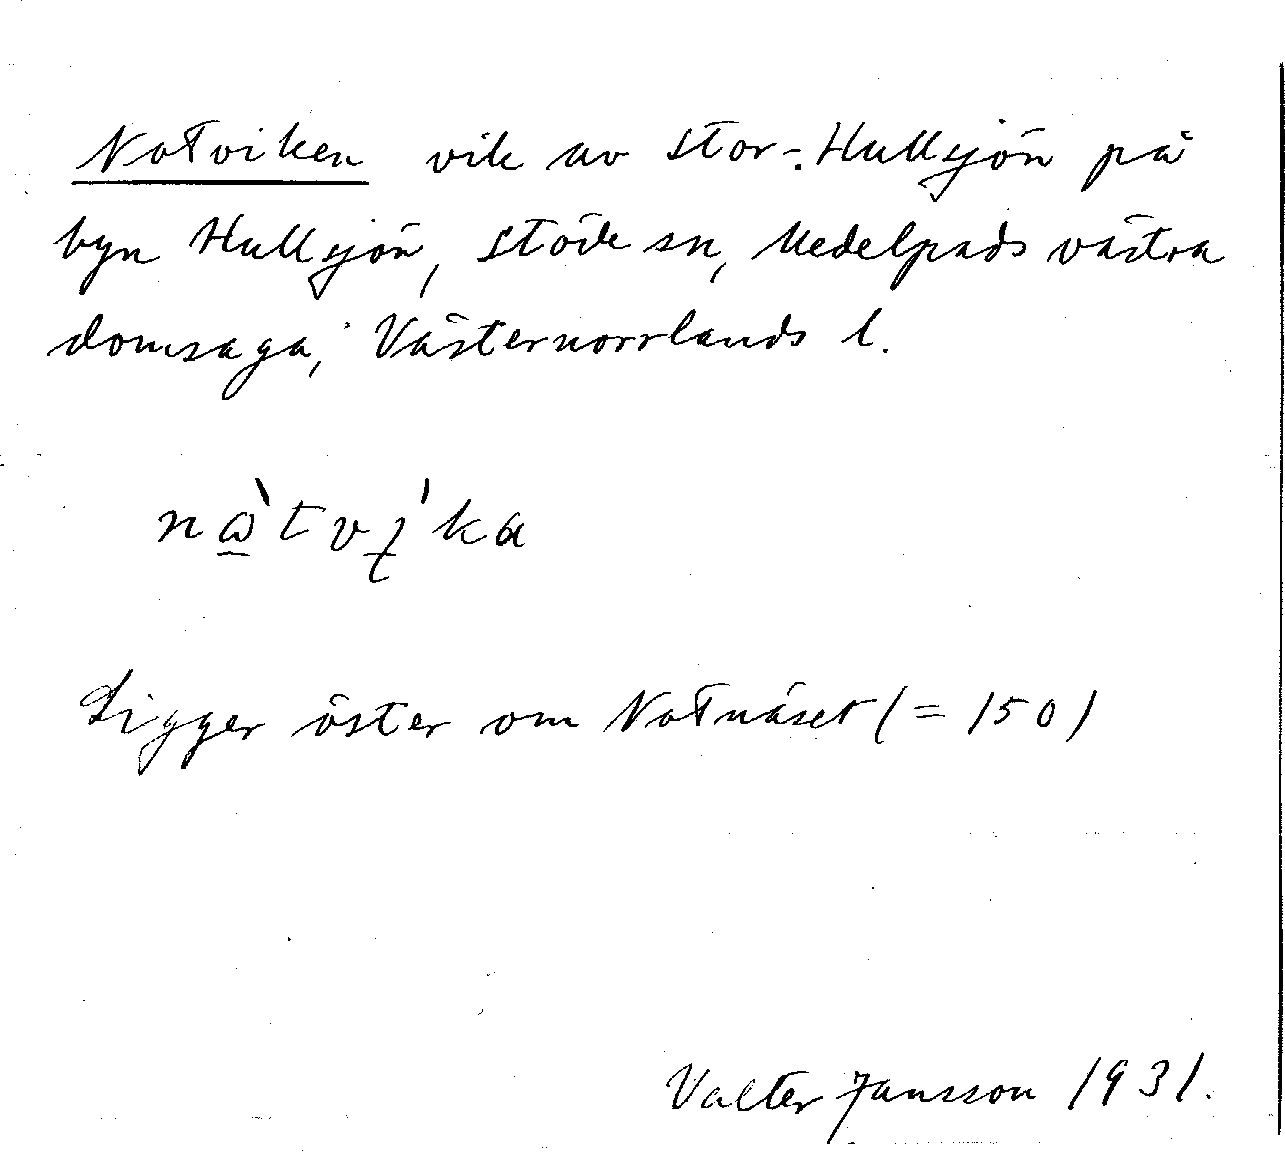 Notviken vik av Stor-Hullsjön på
byn Hullsjön, Stöde sn, Medelpads västra
domsaga, Västernorrlands l.
nὼ̲tví̲ka
Ligger öster om Notnäset (= 150)
Valter Jansson 1931.